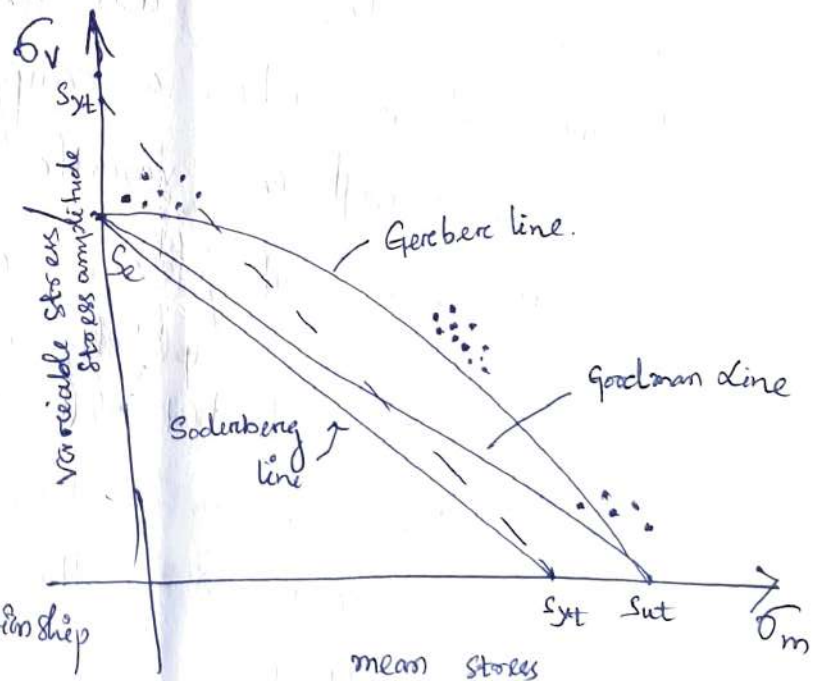 σv
Syt
variable stress
stress amplitude
Se
Gereber line.
Goodman Line
Soderberg
line
Syt Sut
σm
mean stress